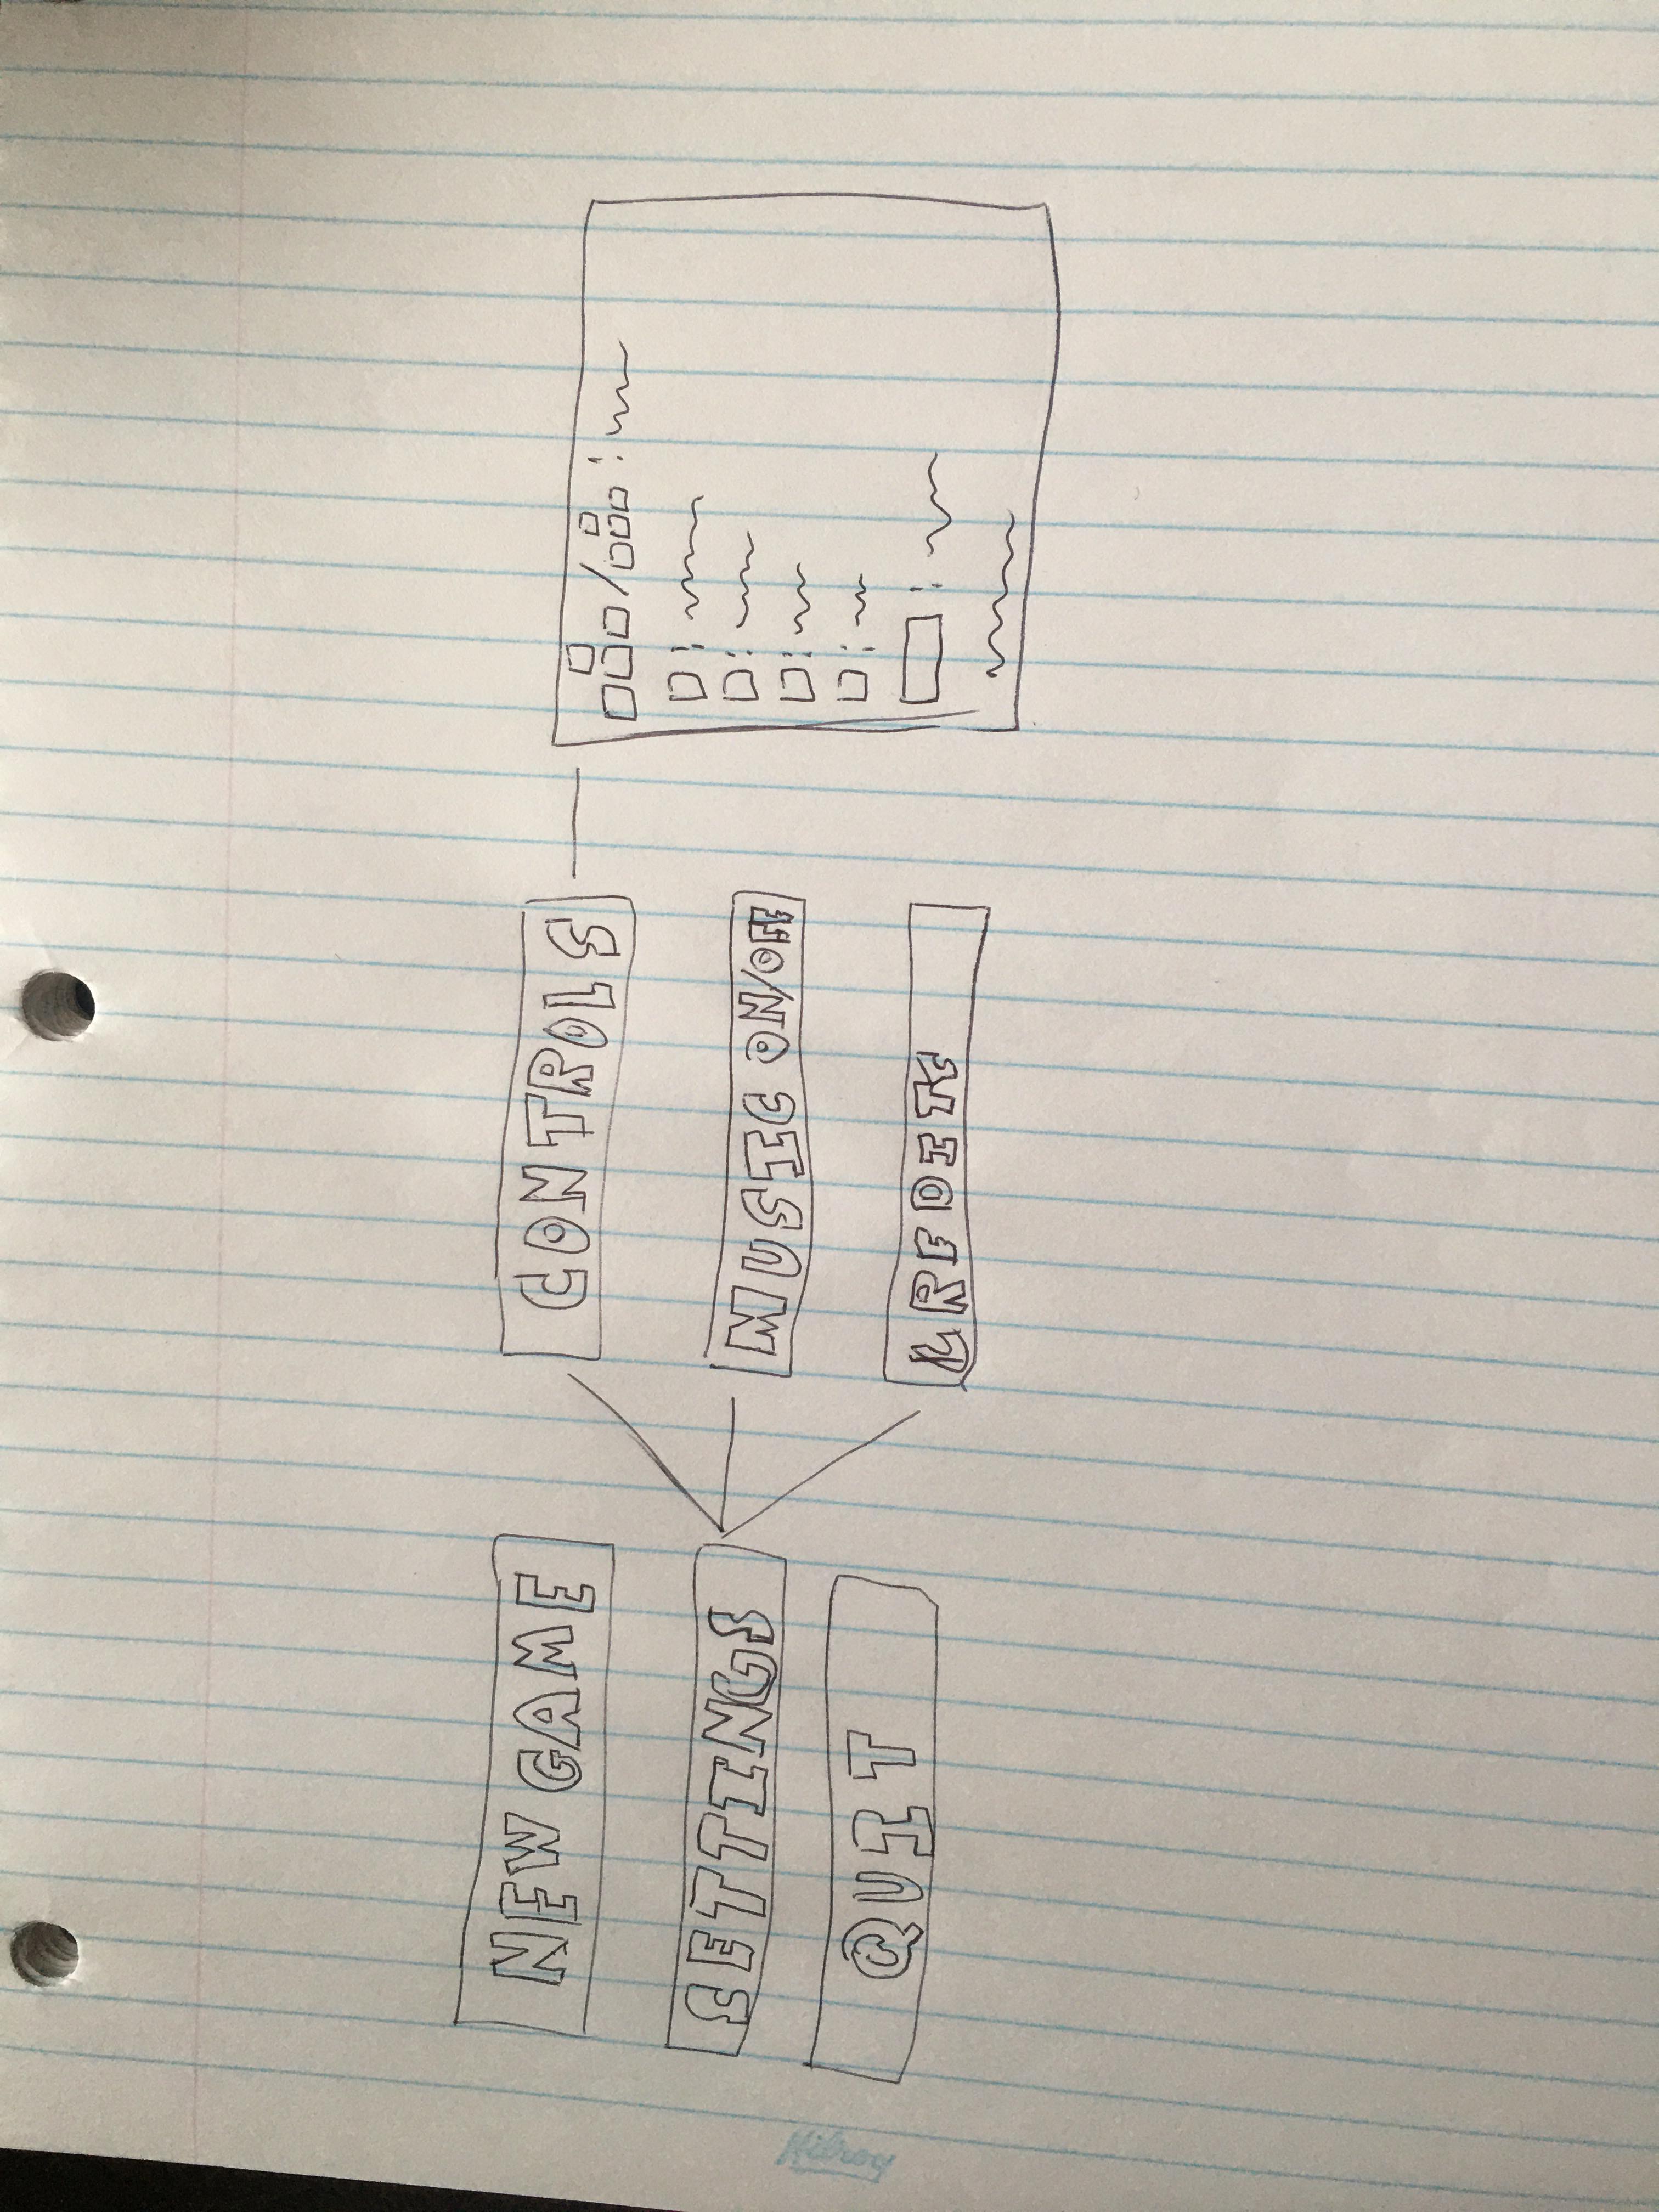 NEW GAME
SETTINGS
QUIT
CONTROLS
MUSIC ON/OFF
CREDITS
Hilroy